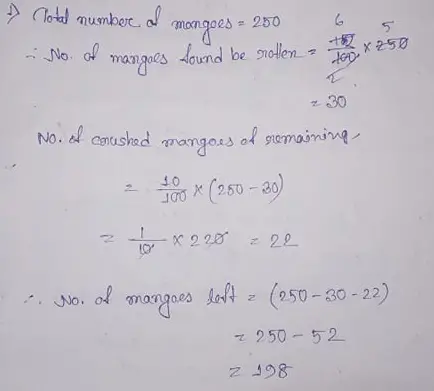 1) Total number of mangoes = 250
∴ No. of mangoes found be rotten = 12/100 × 250
6 5
2
= 30
No. of crushed mangoes of remaining,
= 10/100 × (250 - 30)
= 1/10 × 220 = 22
∴ No. of mangoes left = (250 - 30 - 22)
= 250 - 52
= 198